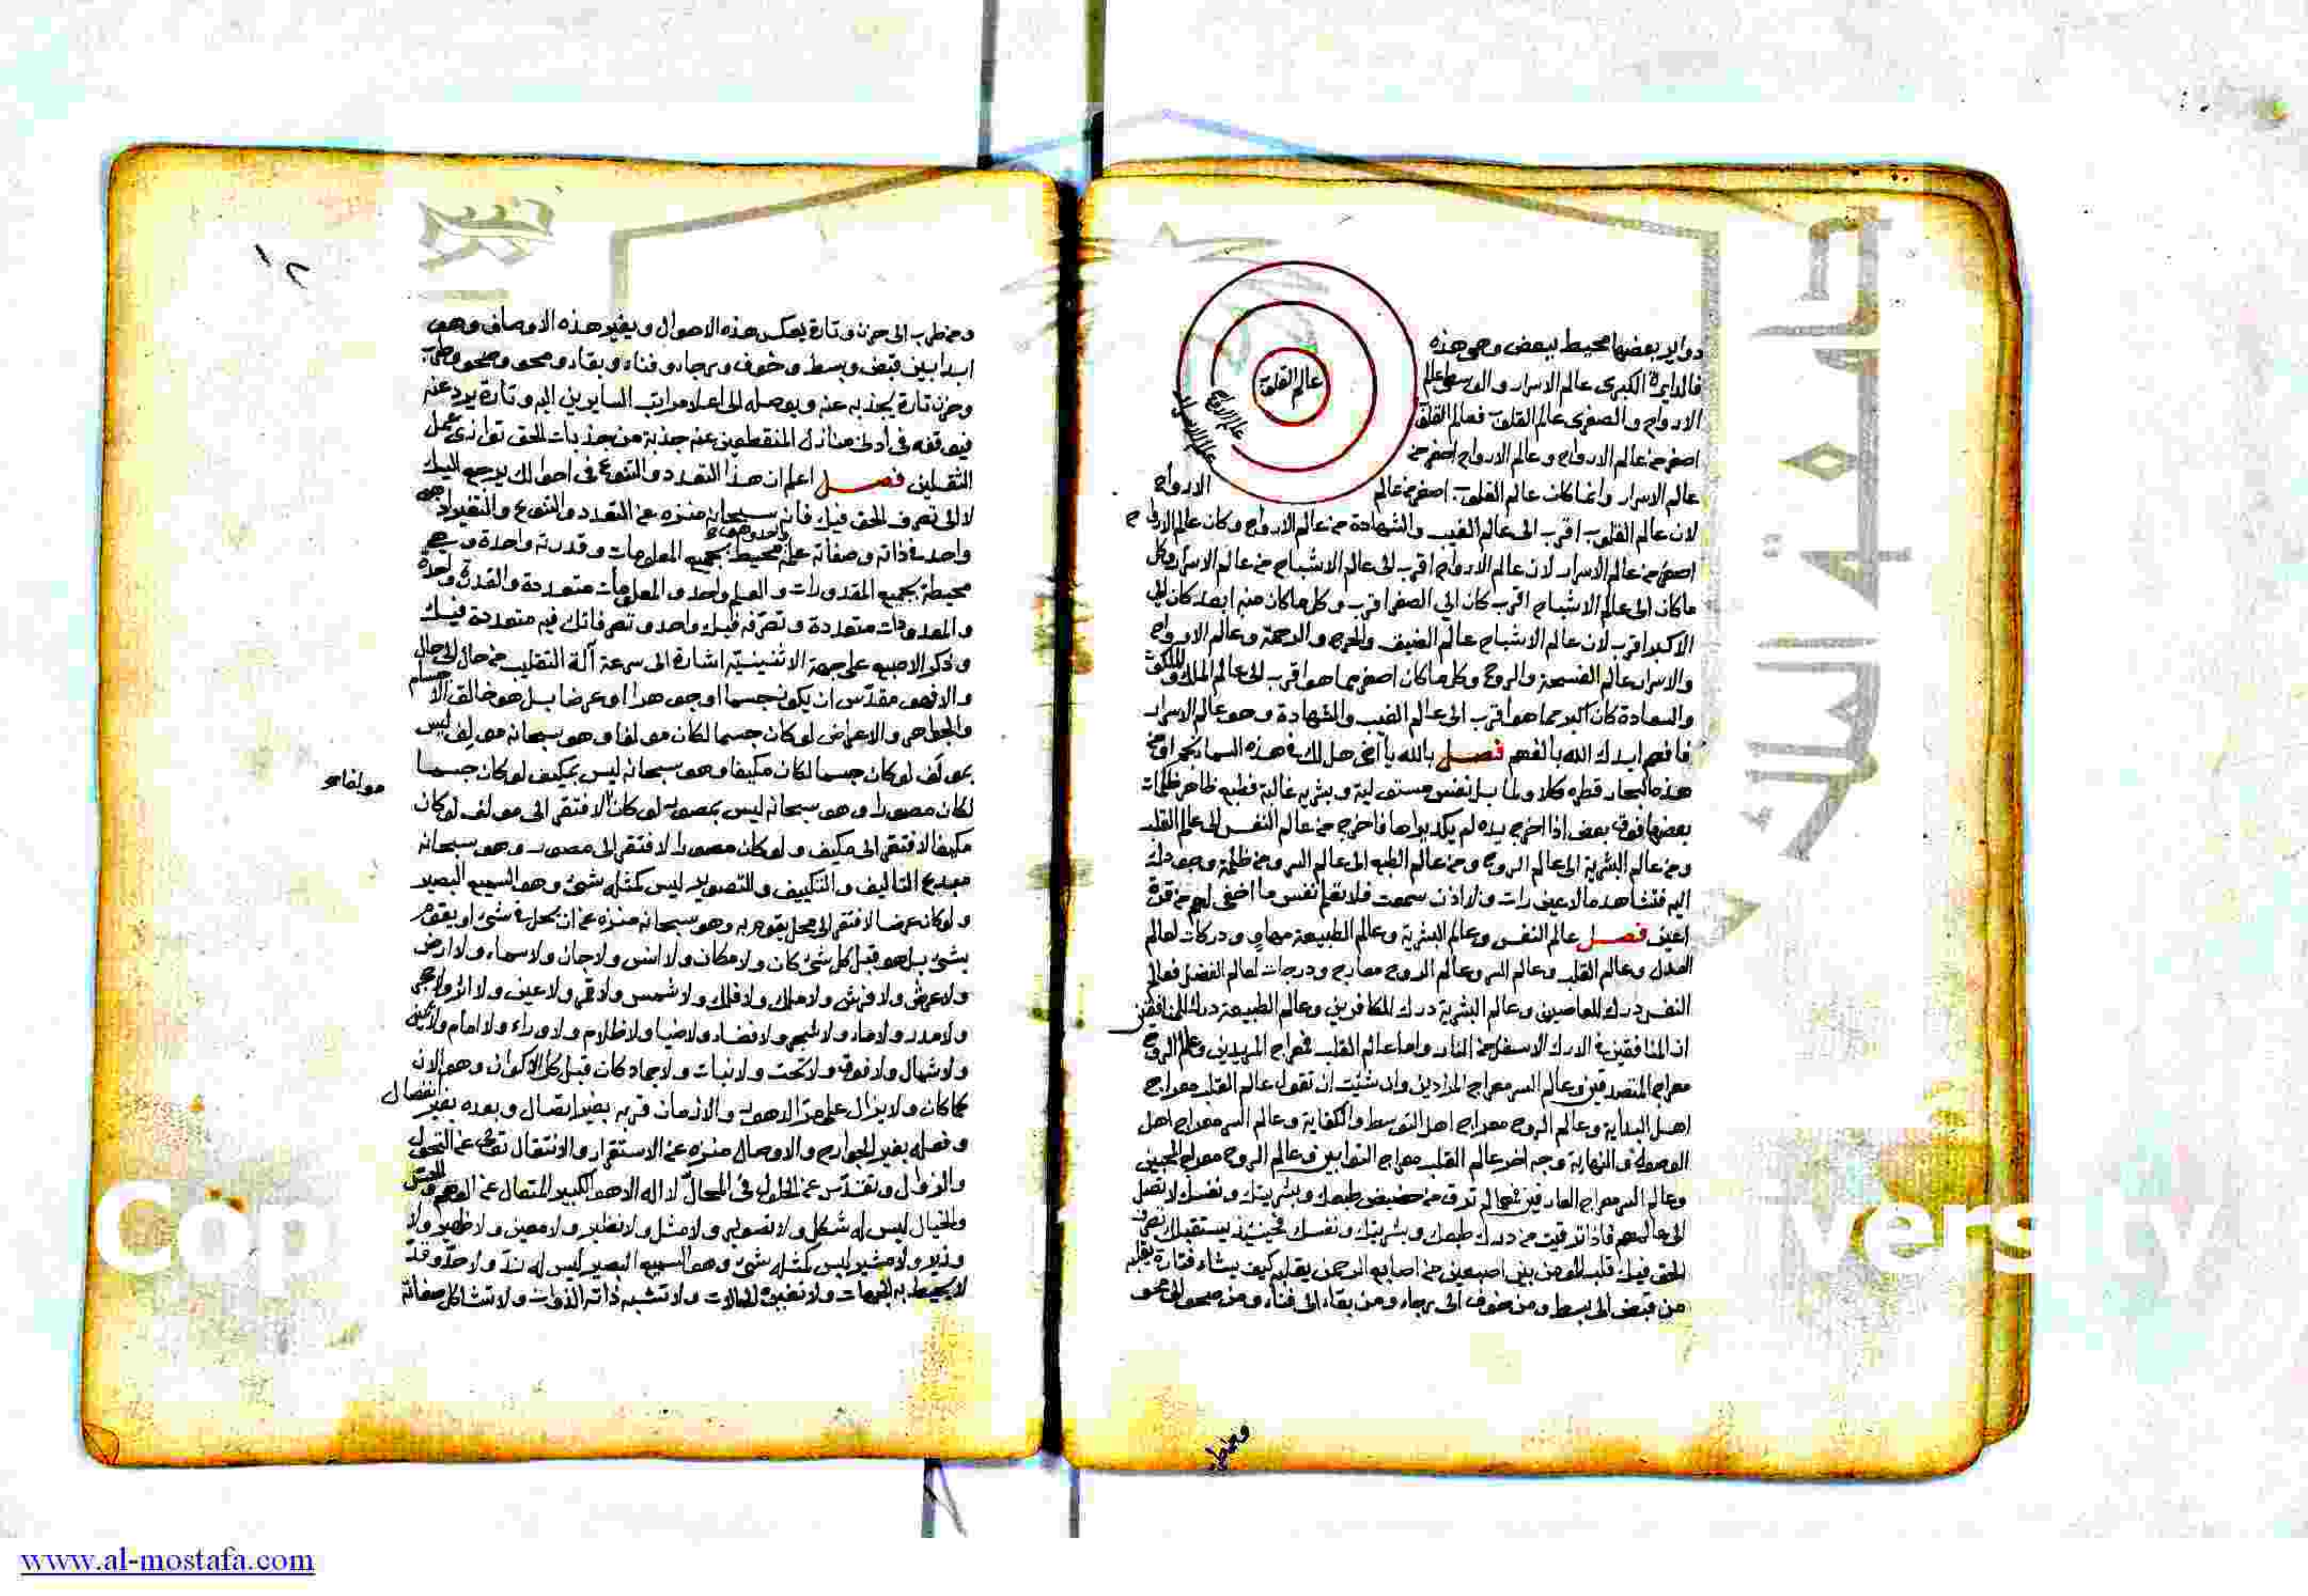 دواير بعضها محيط ببعض وهو هذه
عالم القلوب
عالم الارواح
عالم الاسرار
فالدايرة الكبرى عالم الاسرار والوسطى عالم
الارواح والصغرى عالم القلوب فعالم القلوب
اصغر من عالم الارواح وعالم الارواح اصغر من
عالم الاسرار وانما كان عالم القلوب اصغر من عالم الارواح
لان عالم القلوب اقرب الى عالم الغيب والشهادة من عالم الارواح وكان عالم الارواح
اصغر من عالم الاسرار لان عالم الارواح اقرب الى عالم الاشباح من عالم الاسرار وكل
ما كان الى عالم الاشباح اقرب كان الي الصغر اقرب وكل ما كان منه ابعد كان الي
الاكبر اقرب لان عالم الاشباح عالم الضيق والحرج والزحمة وعالم الارواح
والاسرار عالم الفسحة والروح وكل ما كان اصغر مما هو اقرب الى عالم الملك والملكوت
والسعادة كان اكبر مما هو اقرب الى عالم الغيب والشهادة وهو عالم الاسرار
فافهم ايدك الله بالفهم فصل بالله يا اخي هل لك في هذه السما نجم او من
هذه البحار قطره كلا ولما بل نفس مستولية وبشريه غالبة وطبع ظاهر ظلمات
بعضها فوق بعض اذا اخرج يده لم يكد يراها فاخرج من عالم النفس الى عالم القلب
ومن عالم البشرية الى عالم الروح ومن عالم الطبع الى عالم السر ومن ظلمة وجودك
اليه فتشاهد ما لا عين رات ولا اذن سمعت فلا تعلم نفس ما اخفى لهم من قرة
اعين فصل عالم النفس وعالم البشرية وعالم الطبيعة مهاو ودركات لعالم
العدل وعالم القلب وعالم السر وعالم الروح معارج ودرجات لعالم الفضل فعالم
النفس درك للعاصين وعالم البشرية درك للكافرين وعالم الطبيعة درك للمنافقين
ان المنافقين في الدرك الاسفل من النار واما عالم القلب فمعراج المريدين وعالم الروح
معراج المتصدقين وعالم السر معراج المرادين وان شئت ان تقول عالم القلب معراج
اهل البداية وعالم الروح معراج اهل التوسط والكفاية وعالم السر معراج اهل
الوصول والنهاية وجه اخر عالم القلب معراج التوابين وعالم الروح معراج المحبين
وعالم السر معراج العارفين فما لم ترق من حضيض طبعك وبشريتك ونفسك لا تصل
الى عالمهم فاذا ترقيت من درك طبعك وبشريتك ونفسك فحينئذ يستقبلك تصرف
الحق فيك قلب المومن بين اصبعين من اصابع الرحمن يقلبه كيف يشاء فتارة يقلبه
من قبض الى بسط ومن خوف الى رجاء ومن بقاء الى فناء ومن صحو الى محو
ومن طرب
١٢
ومن طرب الى حزن وتارة يعكس هذه الاحوال ويغير هذه الاوصاف وهو
ابدا بين قبض وبسط وخوف ورجاء وفناء وبقاء ومحو وصحو وطرب
وحزن تارة يجذبه عنه ويوصله الى اعلا مراتب السايرين اليه وتارة يرد عنه
فيوقفه في ادنى منازل المنقطعين عنه جذبة من جذبات الحق توازى عمل
الثقلين فصل اعلم ان هذا التعدد والتنوع في احوالك يرجع اليك
لا الى تصرف الحق فيك فانه سبحانه منزه عن التعدد والتنوع والتغير
واحد في ذاته وصفاته علمه محيط بجميع المعلومات وقدرته واحدة وهي
محيطة بجميع المقدورات والعلم واحد والمعلومات متعددة والقدرة واحدة
والمقدورات متعددة وتصرفه فيك واحد وتصرفاتك فيه متعددة فيك
وذكر الاصبع على جهة الاثنينية اشارة الى سرعة آلة التقليب من حال الى حال
والا فهو مقدس ان يكون جسما او جوهرا او عرضا بل هو خالق الاجسام
والجواهر والاعراض لو كان جسما لكان مولفا وهو سبحانه مولف ليس
بمولف لو كان جسما لكان مكيفا وهو سبحانه ليس بمكيف لو كان جسما
لكان مصورا وهو سبحانه ليس بمصور لو كان لافتقر الى مولف لو كان
مولفا
مكيفا لافتقر الى مكيف ولو كان مصورا لافتقر الى مصور وهو سبحانه
مبدع التاليف والتكييف والتصوير ليس كمثله شئ وهو السميع البصير
ولو كان عرضا لافتقر الى محل يقوم به وهو سبحانه منزه عن ان يحل في شئ او يقوم
بشئ بل هو قبل كل شئ كان ولا مكان ولا انس ولا جان ولا سماء ولا ارض
ولا عرش ولا فرش ولا ملك ولا فلك ولا شمس ولا قمر ولا عين ولا اثر ولا حجر
ولا مدر ولا ماء ولا شجر ولا فضاء ولا ضيا ولا ظلام ولا وراء ولا امام ولا يمين
ولا شمال ولا فوق ولا تحت ولا نبات ولا جماد كان قبل كل الاكوان وهو الان
كما كان ولا يزال على مر الدهور والازمان قربه بغير اتصال وبعده بغير انفصال
وفعله بغير الجوارح والاوصال منزه عن الاستقرار والانتقال تعالى عن التحول
والزوال وتقدس عن الحلول في المحال لا اله الا هو الكبير المتعال عن الوهم والحس
والخيال ليس له شكل ولا تصوير ولا مثل ولا نظير ولا معين ولا ظهير ولا
وزير ولا مشير ليس كمثله شئ وهو السميع البصير ليس له ند ولا حد وقد
لا يحيط به الجهات ولا تغيره الحالات ولا تشبه ذاته الذوات ولا تشاكل صفاته
www.al-mostafa.com